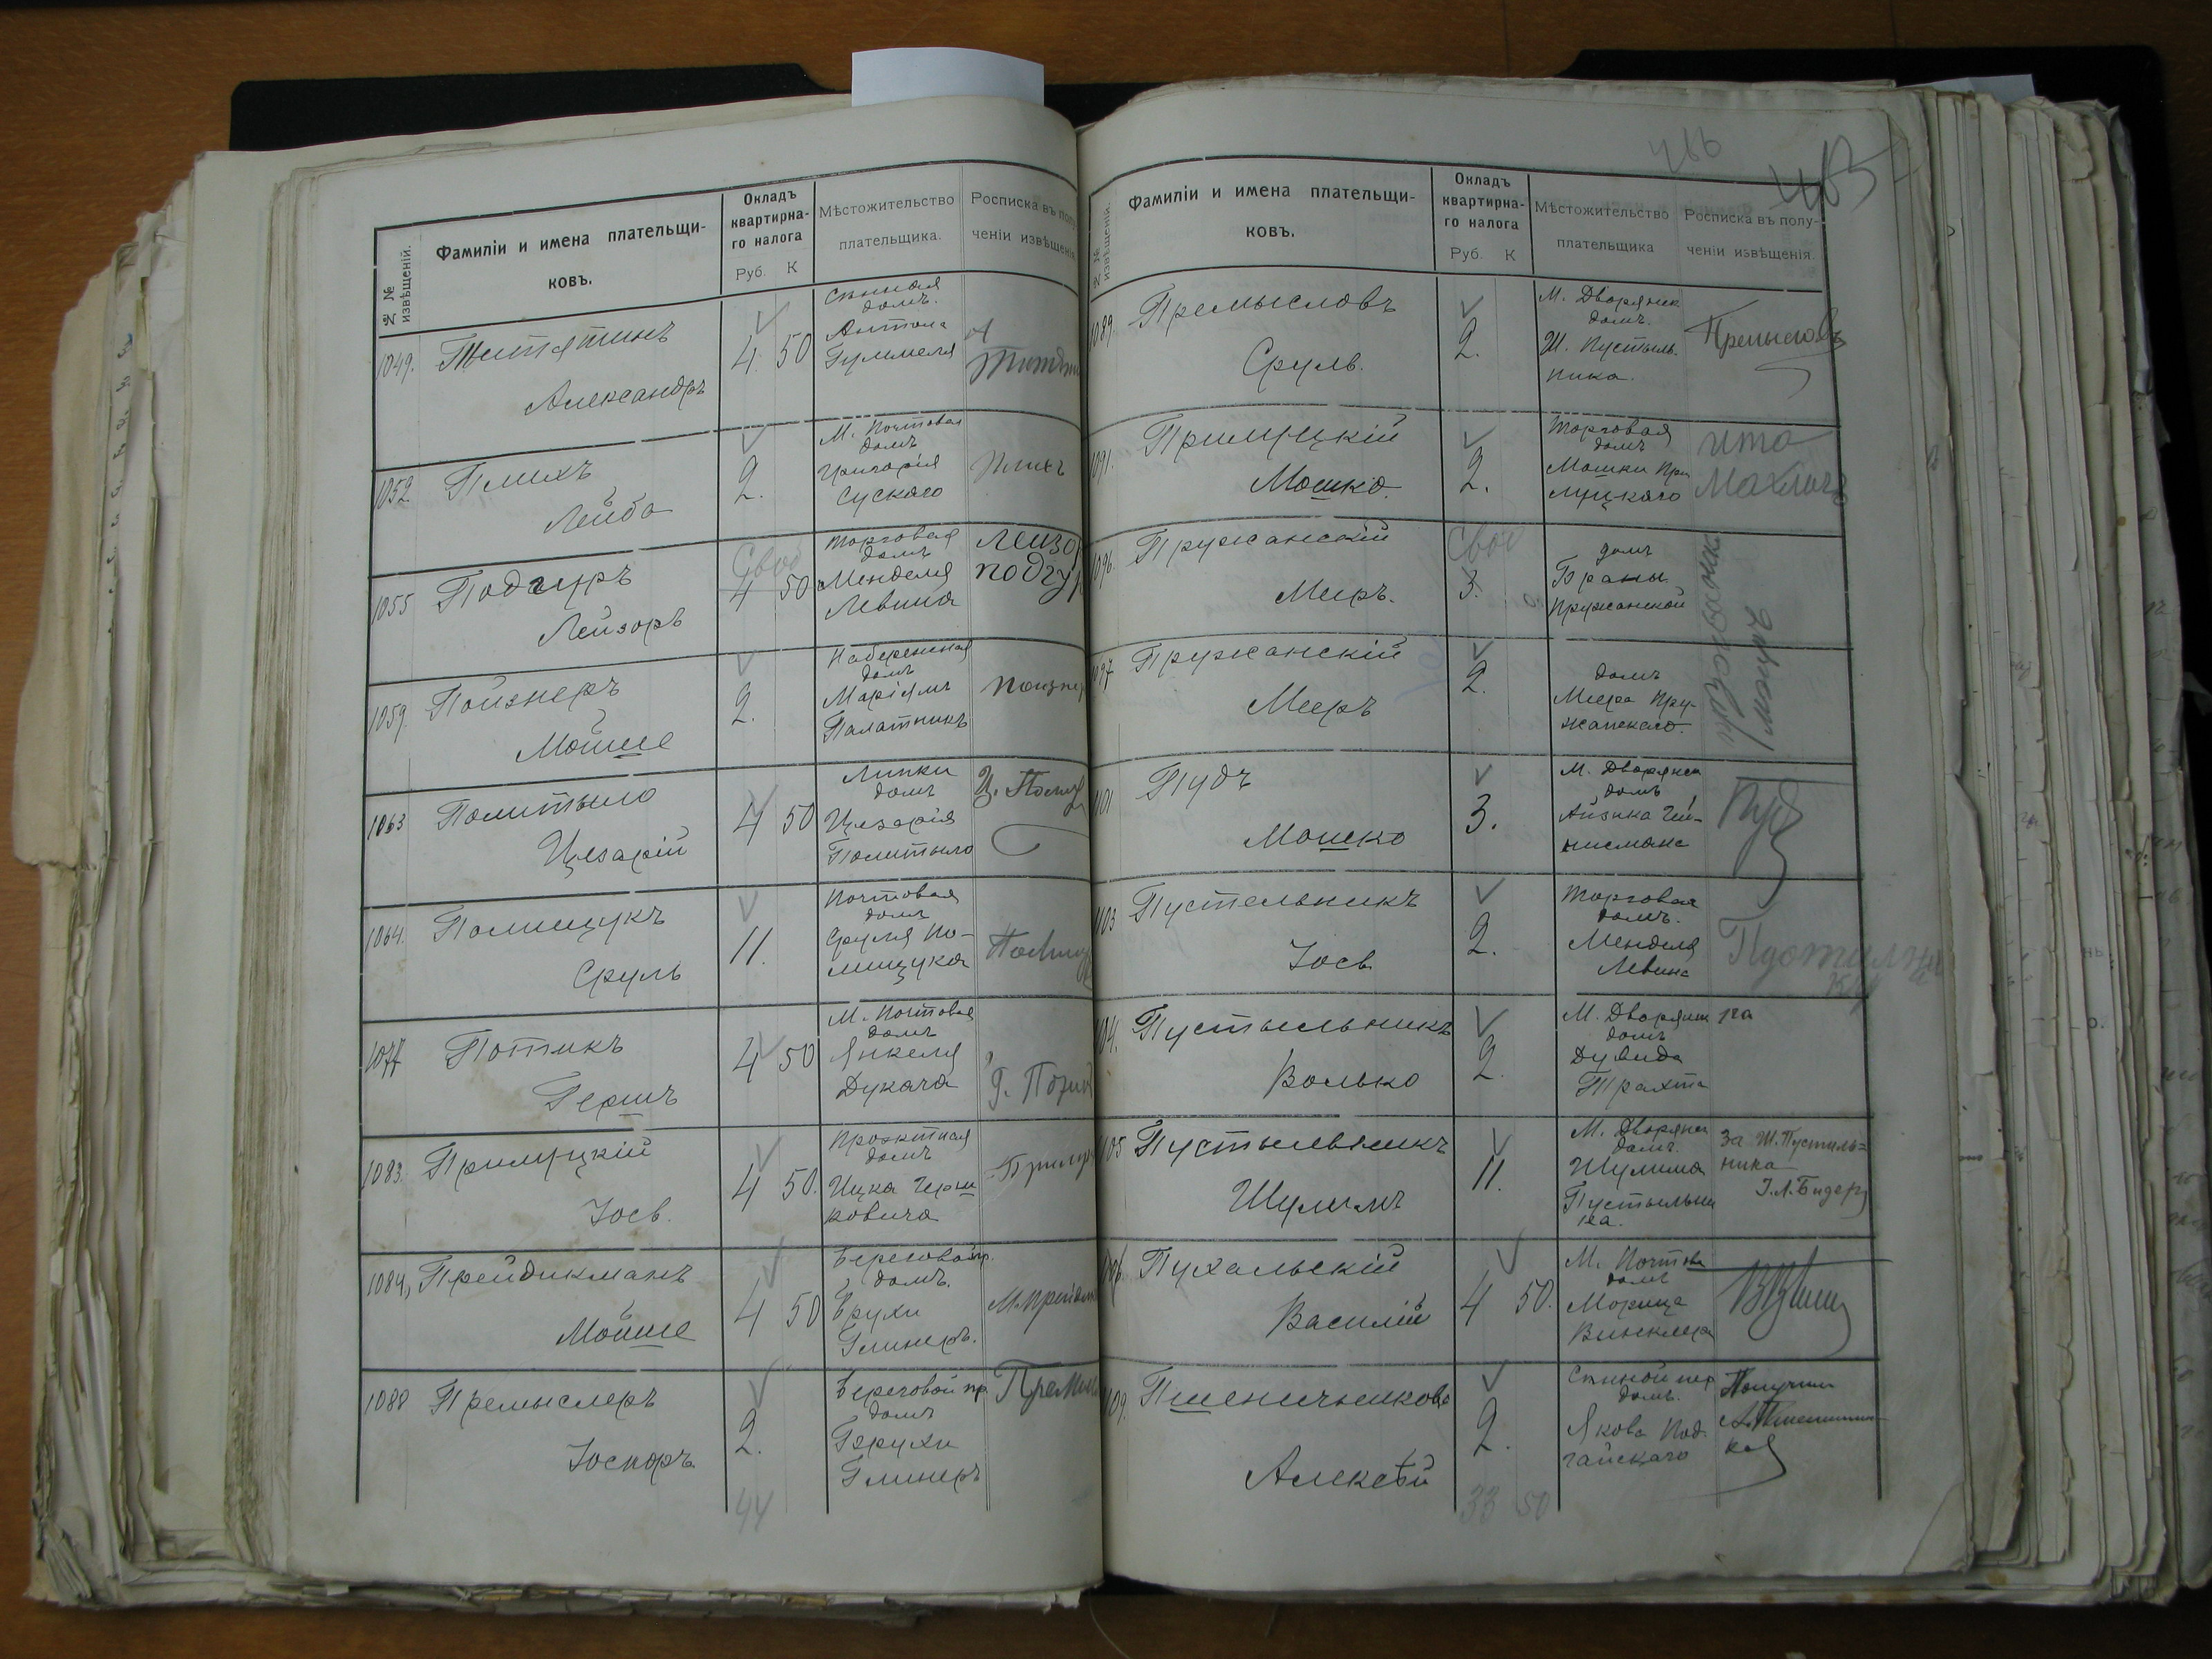 № № извѣщеній.
Фамиліи и имена плательщи-
ковъ.
Окладъ
квартирна-
го налога
Руб. К
Мѣстожительство
плательщика.
Росписка въ полу-
ченіи извѣщенія
1049.
Александръ
4 50
домъ.
Антона
Гуммеля
1052
Плихъ
Лейба
2.
М. Почтовая
домъ
Григорія
Сускаго
Плихъ
1055
Подгуръ
Лейзоръ
Своб
4 50
Торговая
домъ
Менделя
Левина
Лейзо
подгу
1059.
Пойзнеръ
Мойше
2.
Набережная
домъ
Маріямъ
Палатникъ
Пойзнер
1063
Политыло
Цезарій
4 50
Липки
домъ
Цезарія
Политыло
Ц. Полит
1064.
Полищукъ
Сруль
11.
Почтовая
домъ
Сруля По-
лищука
Полищ
1077
Потикъ
Гершъ
4 50
М. Почтовая
домъ
Янкеля
Дукача
Г. Потик
1083.
Прилуцкій
Іосъ.
4 50.
домъ
Ицка Черни
ковича
Прилуц
1084,
Прейдикманъ
Мойше
4 50
Береговой пр.
домъ.
Брухи
Глинеръ.
М. Прейди
1088
Премыслеръ
Іоспоръ.
2.
Береговой пр.
домъ
Брухи
Глинеръ
Премы
44
466
463
№ № извѣщеній.
Фамиліи и имена плательщи-
ковъ.
Окладъ
квартирна-
го налога
Руб. К
Мѣстожительство
плательщика
Росписка въ полу-
ченіи извѣщенія.
1089.
Премысловъ
Сруль.
2.
М. Дворянск
домъ.
Ш. Пустыль-
ника.
Премысловъ
1091.
Прилуцкій
Мошко.
2.
Торговая
домъ
Мошки При
луцкаго
1096.
Пружанскій
Меиръ.
Своб
3.
домъ
Браны
Пружанской
1097
Пружанскій
Меиръ
2.
домъ
Меера Пру-
жанскаго.
1101
Пудъ
Мошко
3.
М. Дворянск
домъ
Айзика Гей-
нисмана
Пуд
1103
Пустельникъ
Іосъ
2.
Торговая
домъ.
Менделя
Левина
1104.
Пустыльникъ
Волько
2.
М. Дворянск ка
домъ
Дувида
Трахта
1105
Пустыльникъ
Шулимъ
11.
М. Дворянск
домъ.
Шулима
Пустыльни
ка.
За Ш. Пустиль-
ника
І. Л. Бидеръ
1106.
Пухальскій
Василій
4 50.
М. Почтова
домъ
Морица
Винклера
1109.
Пшеничниковъ
Алексѣй
2.
домъ.
Якова Под-
гайецкаго
Получилъ
А. Пшенични-
ков
33 50